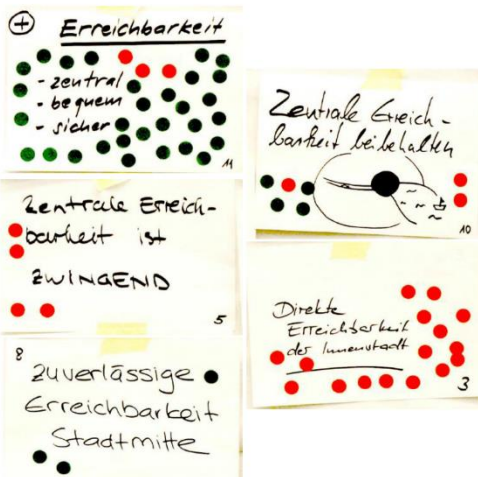 + Erreichbarkeit
- zentral
- bequem
- sicher
11
Zentrale Erreich-
barkeit ist
ZWINGEND
5
8
zuverlässige
Erreichbarkeit
Stadtmitte
Zentrale Erreich-
barkeit beibehalten
10
Direkte
Erreichbarkeit
der Innenstadt
3